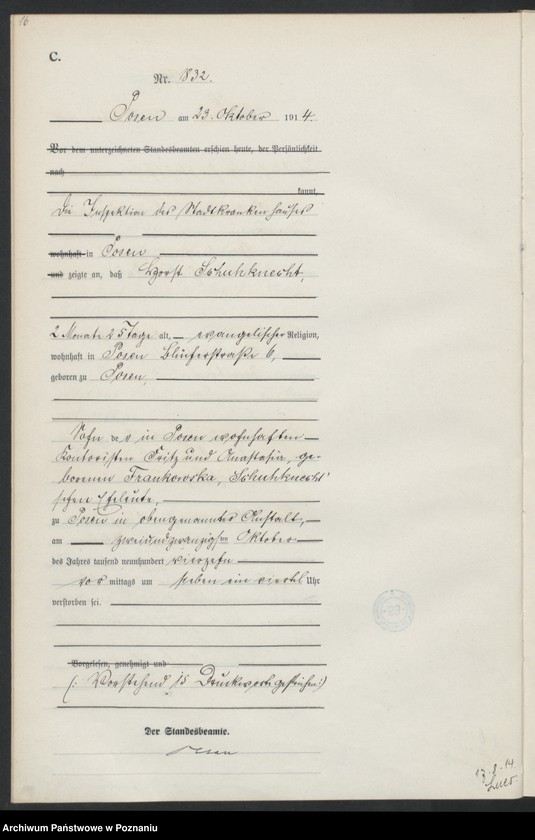 16
C.
Nr. 832.
Posen am 23. Oktober 1914.
Vor dem unterzeichneten Standesbeamten erschien heute, der Persönlichkeit
nach
kannt,
Die Inspektion des Stadtkrankenhauses
wohnhaft in Posen
und zeigte an, daß Horst Schuhknecht,
2 Monate 25 Tage alt, evangelischer Religion,
wohnhaft in Posen Blücherstraße 6,
geboren zu Posen,
Sohn der in Posen wohnhaften
Kontoristen Fritz und Anastasia, ge-
borenen Frankowska, Schuhknecht'
schen Eheleute,
zu Posen in obengenannter Anstalt,
am zweiundzwanzigsten Oktober
des Jahres tausend neunhundert vierzehn
vor mittags um sieben ein viertel Uhr
verstorben sei.
Vorgelesen, genehmigt und
(: Vorstehend 15 Druckworte gestrichen :)
Der Standesbeamte.
23
Archiwum Państwowe w Poznaniu